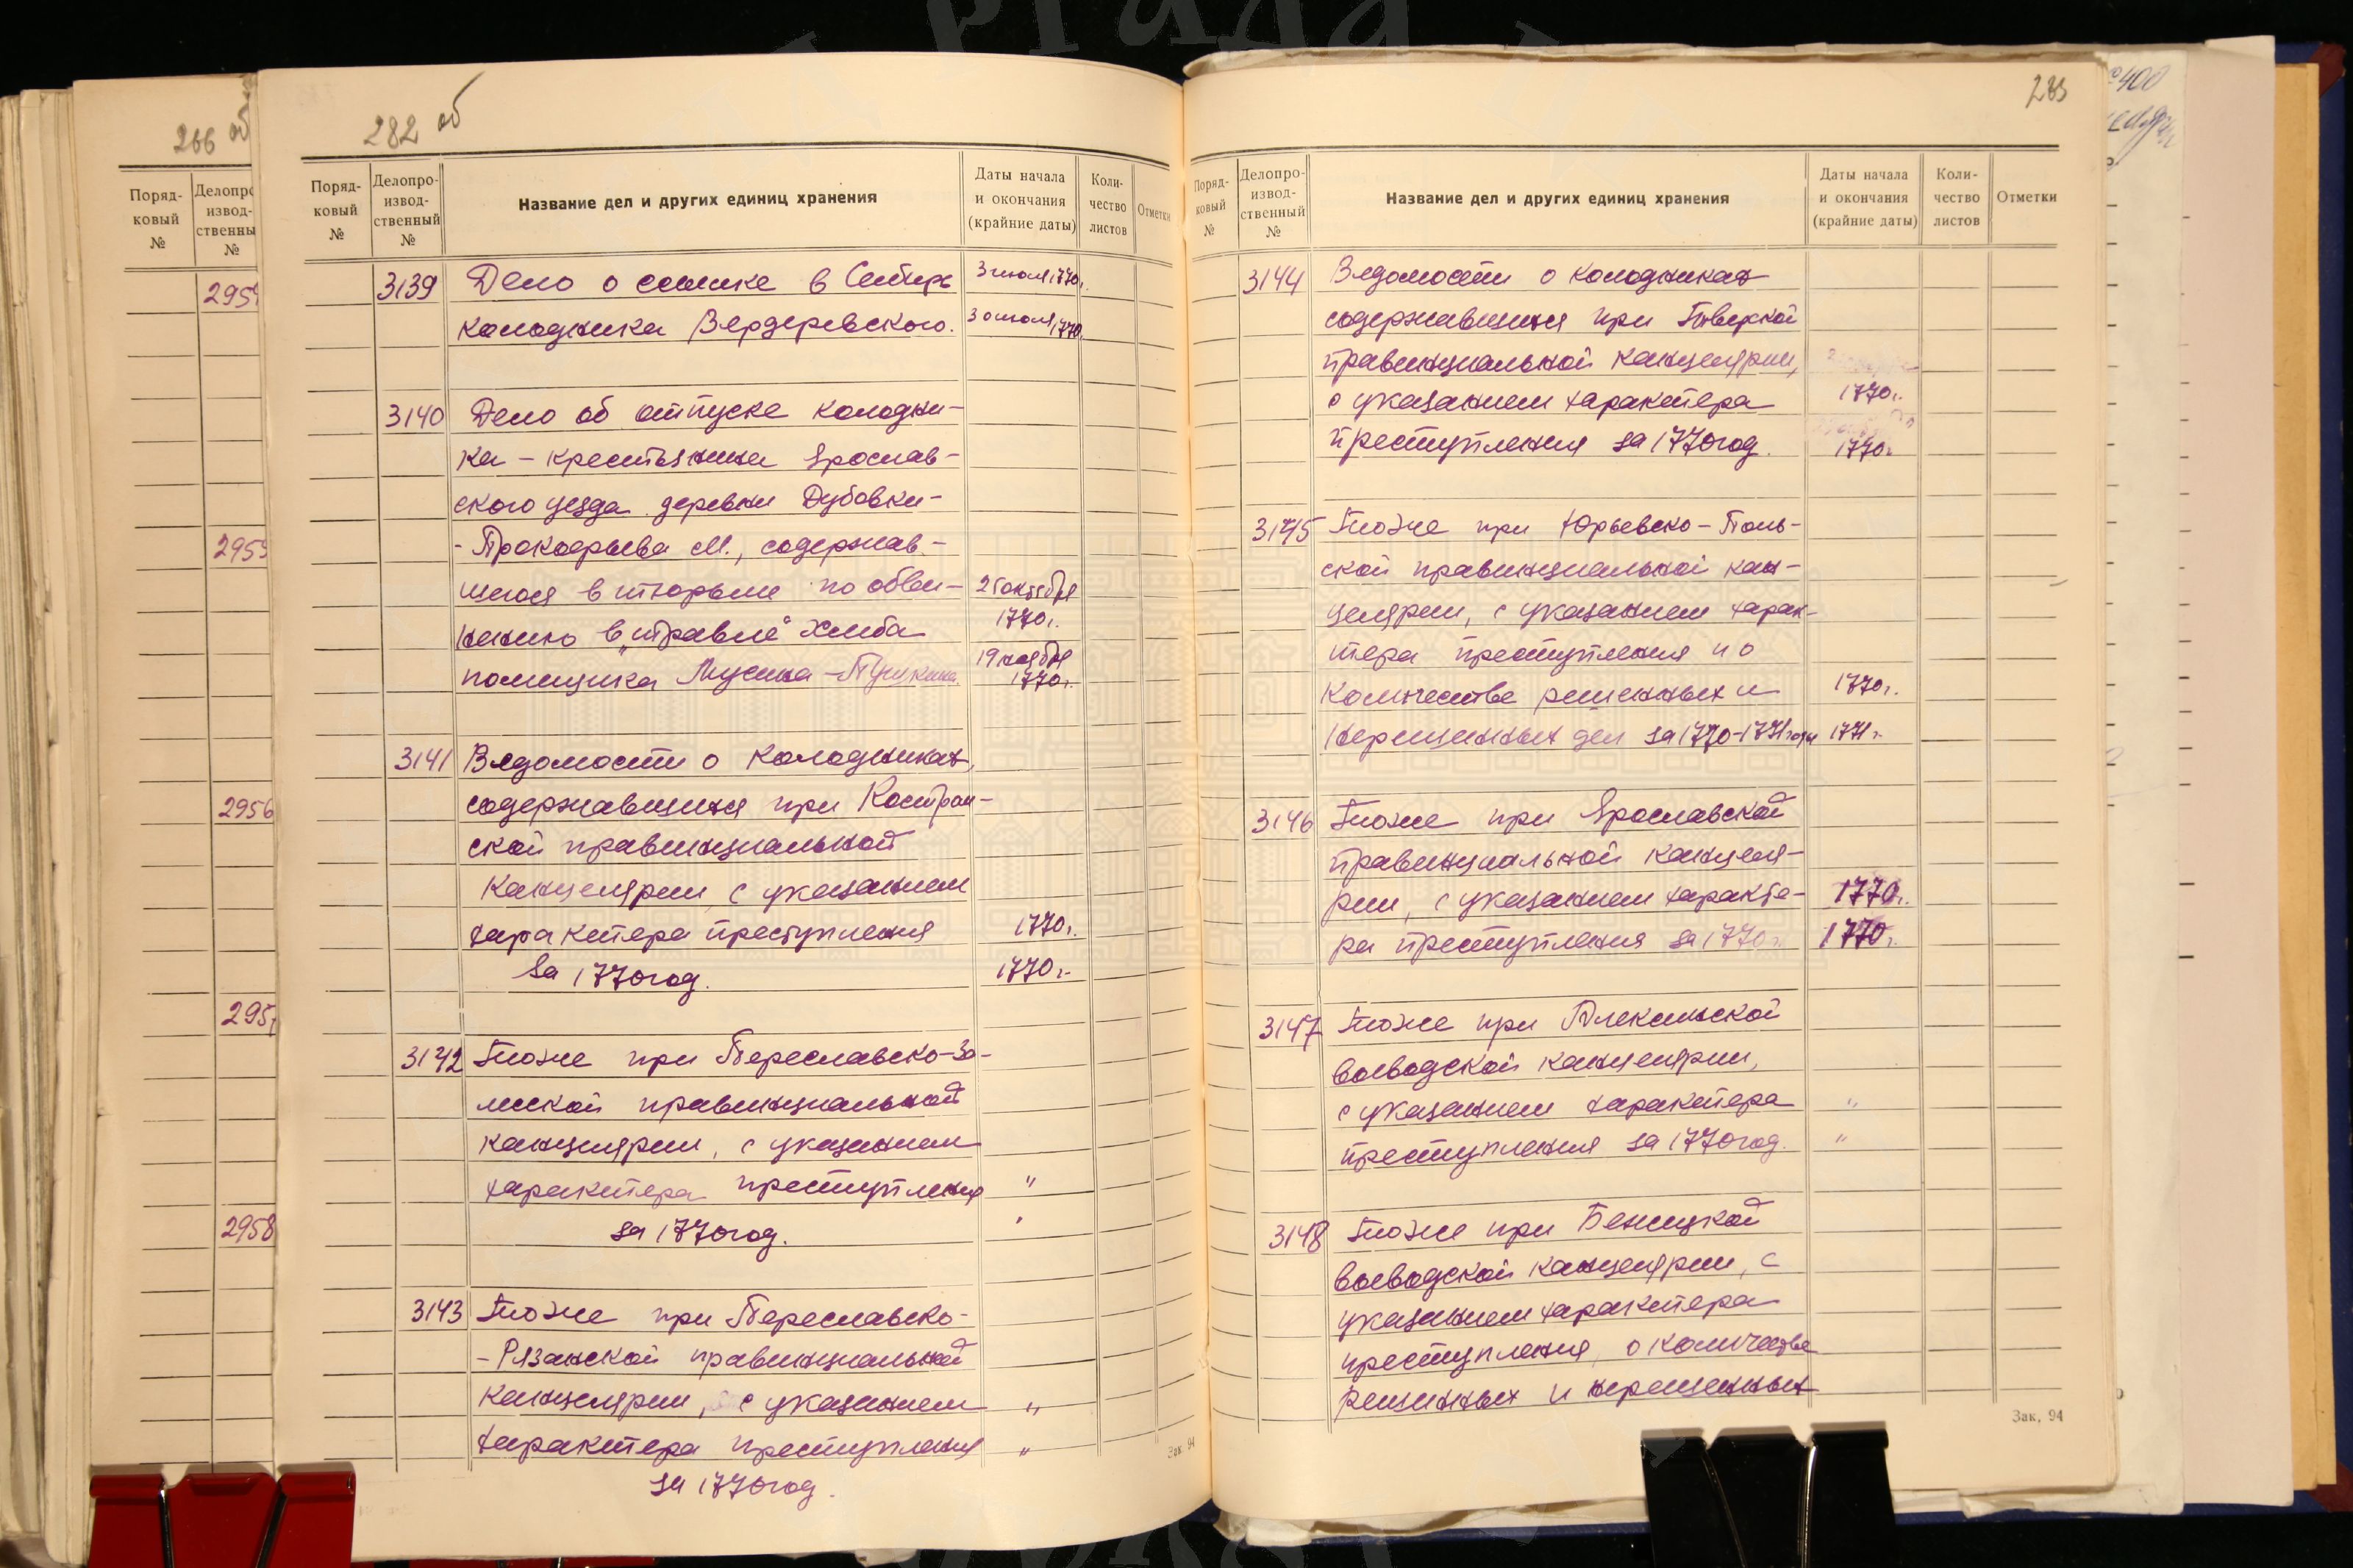 266 об
Поряд-
ковый
№
Делопро
извод-
ственны
№
2955
2956
2958
282 об
Поряд-
ковый
№
Делопро-
извод-
ственный
№
Название дел и других единиц хранения
Даты начала
и окончания
(крайние даты)
Коли-
чество
листов
Отметки
3139 Дело о ссылке в Сибирь 3 июля 1770г.
колодника Вердеревского. 30 июля 1770г.
3140 Дело об отпуске колодни-
ка - крестьянина Ярослав-
ского уезда деревни Дубовки-
- Прокофьева М., содержав-
шегося в тюрьме по обви- 25 октября
нению в „травле" хлеба 1770г.
помещика Мусина-Пушкина. 19 ноября
1770г.
3141 Ведомости о колодниках,
содержавшихся при Костром-
ской правинциальной
канцелярии, с указанием
характера преступления 1770г.
за 1770 год. 1770г.
3142 То же при Переславско-За-
лесской правинциальной
канцелярии, с указанием
характера преступления "
за 1770 год. "
3143 То же при Переславско-
- Рязанской правинциальной
канцелярии, с указанием "
характера преступления "
за 1770 год.
Зак. 94
283
Поряд-
ковый
№
Делопро-
извод-
ственный
№
Название дел и других единиц хранения
Даты начала
и окончания
(крайние даты)
Коли-
чество
листов
Отметки
3144 Ведомости о колодниках
содержавшихся при
правинциальной канцелярии,
с указанием характера 1770г.
преступления за 1770 год. 1770г.
3145 То же при Юрьевско-Поль-
ской правинциальной кан-
целярии, с указанием харак-
тера преступления и о
количестве решенных и 1770г.
нерешенных дел за 1770-1771 годы 1771г.
3146 То же при Ярославской
правинциальной канцеля-
рии, с указанием характе- 1770г.
ра преступления за 1770г. 1770г.
3147 То же при Алексинской
воеводской канцелярии,
с указанием характера "
преступления за 1770 год. "
3148 То же при Бежицкой
воеводской канцелярии, с
указанием характера
преступления, о количестве
решенных и нерешенных
Зак, 94